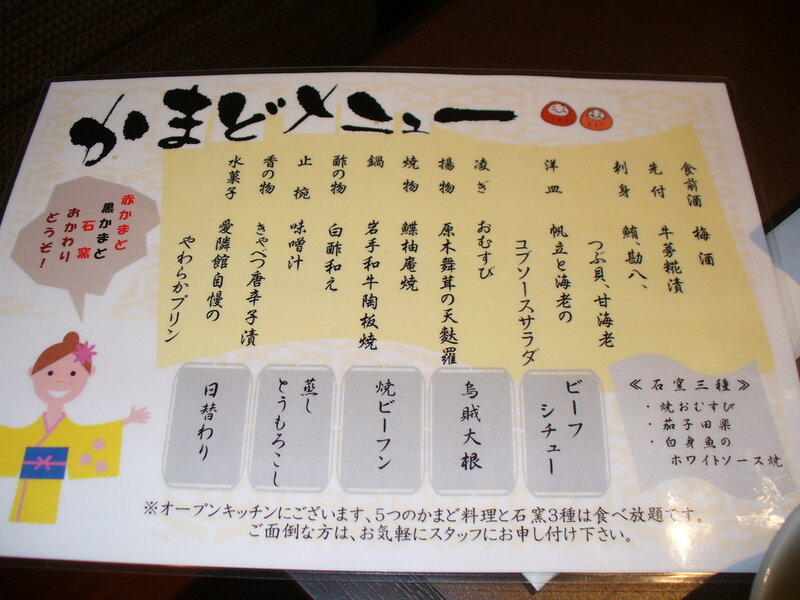 かまどメニュー
食前酒 梅酒
先付 牛蒡糀漬
刺身 鮪、勘八、
つぶ貝、甘海老
洋皿 帆立と海老の
コブソースサラダ
凌ぎ おむすび
揚物 原木舞茸の天麩羅
焼物 鰈柚庵焼
鍋 岩手和牛陶板焼
酢の物 白酢和え
止椀 味噌汁
香の物 きゃべつ唐辛子漬
水菓子 愛隣館自慢の
やわらかプリン
赤かまど
黒かまど
石窯
おかわり
どうぞ!
≪石窯三種≫
・焼おむすび
・茄子田楽
・白身魚の
ホワイトソース焼
ビーフ
シチュー
烏賊大根
焼ビーフン
蒸し
とうもろこし
日替わり
※オープンキッチンにございます、5つのかまど料理と石窯3種は食べ放題です。
ご面倒な方は、お気軽にスタッフにお申し付け下さい。